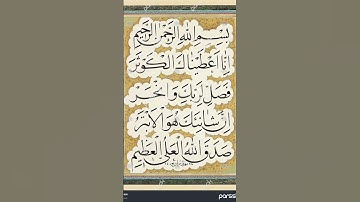 بِسْمِ اللهِ الرَّحْمٰنِ الرَّحِيْمِ
اِنَّا اَعْطَيْنَاكَ الْكَوْثَرَ
فَصَلِّ لِرَبِّكَ وَانْحَرْ
اِنَّ شَانِئَكَ هُوَ الْاَبْتَرُ
صَدَقَ اللهُ الْعَلِيُّ الْعَظِيْمُ
parss